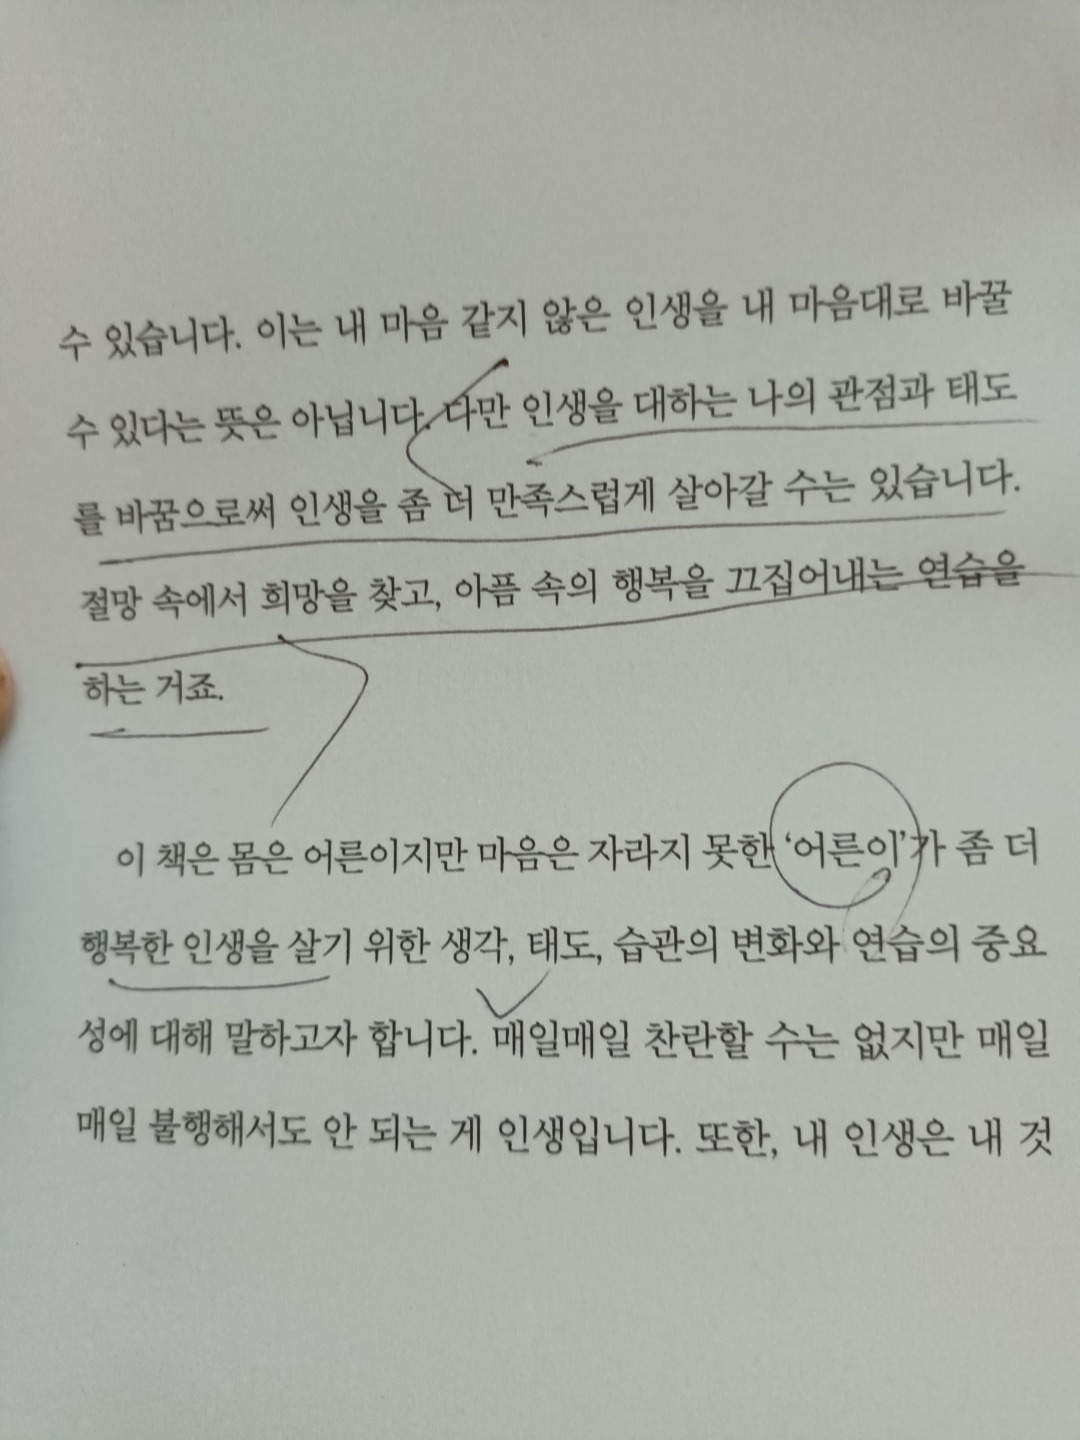 수 있습니다. 이는 내 마음 같지 않은 인생을 내 마음대로 바꿀
수 있다는 뜻은 아닙니다. 다만 인생을 대하는 나의 관점과 태도
를 바꿈으로써 인생을 좀 더 만족스럽게 살아갈 수는 있습니다.
절망 속에서 희망을 찾고, 아픔 속의 행복을 끄집어내는 연습을
하는 거죠.
이 책은 몸은 어른이지만 마음은 자라지 못한 ‘어른이’가 좀 더
행복한 인생을 살기 위한 생각, 태도, 습관의 변화와 연습의 중요
성에 대해 말하고자 합니다. 매일매일 찬란할 수는 없지만 매일
매일 불행해서도 안 되는 게 인생입니다. 또한, 내 인생은 내 것